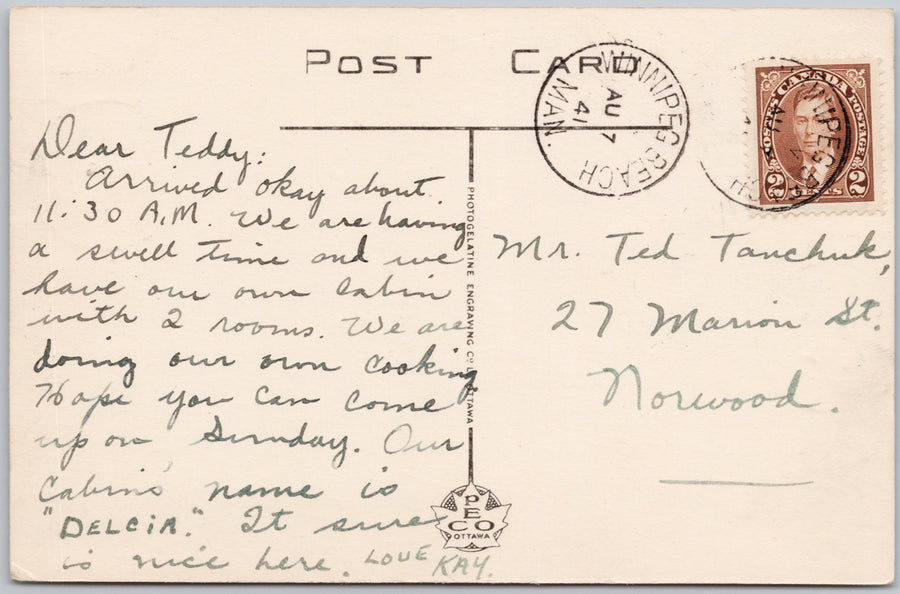 POST CARD
WINNIPEG BEACH
AU 7
41
MAN.
CANADA
POSTES POSTAGE
2 CENTS 2
Dear Teddy:
Arrived okay about
11:30 A.M. We are having
a swell time and we
have our own cabin
with 2 rooms. We are
doing our own cooking
Hope you can come
up on Sunday. Our
Cabin's name is
"DELCIA." It sure
is nice here. LOVE KAY.
PHOTOGELATINE ENGRAVING CO. LTD. OTTAWA
PECO
OTTAWA
Mr. Ted Tanchuk,
27 Marion St.
Norwood.